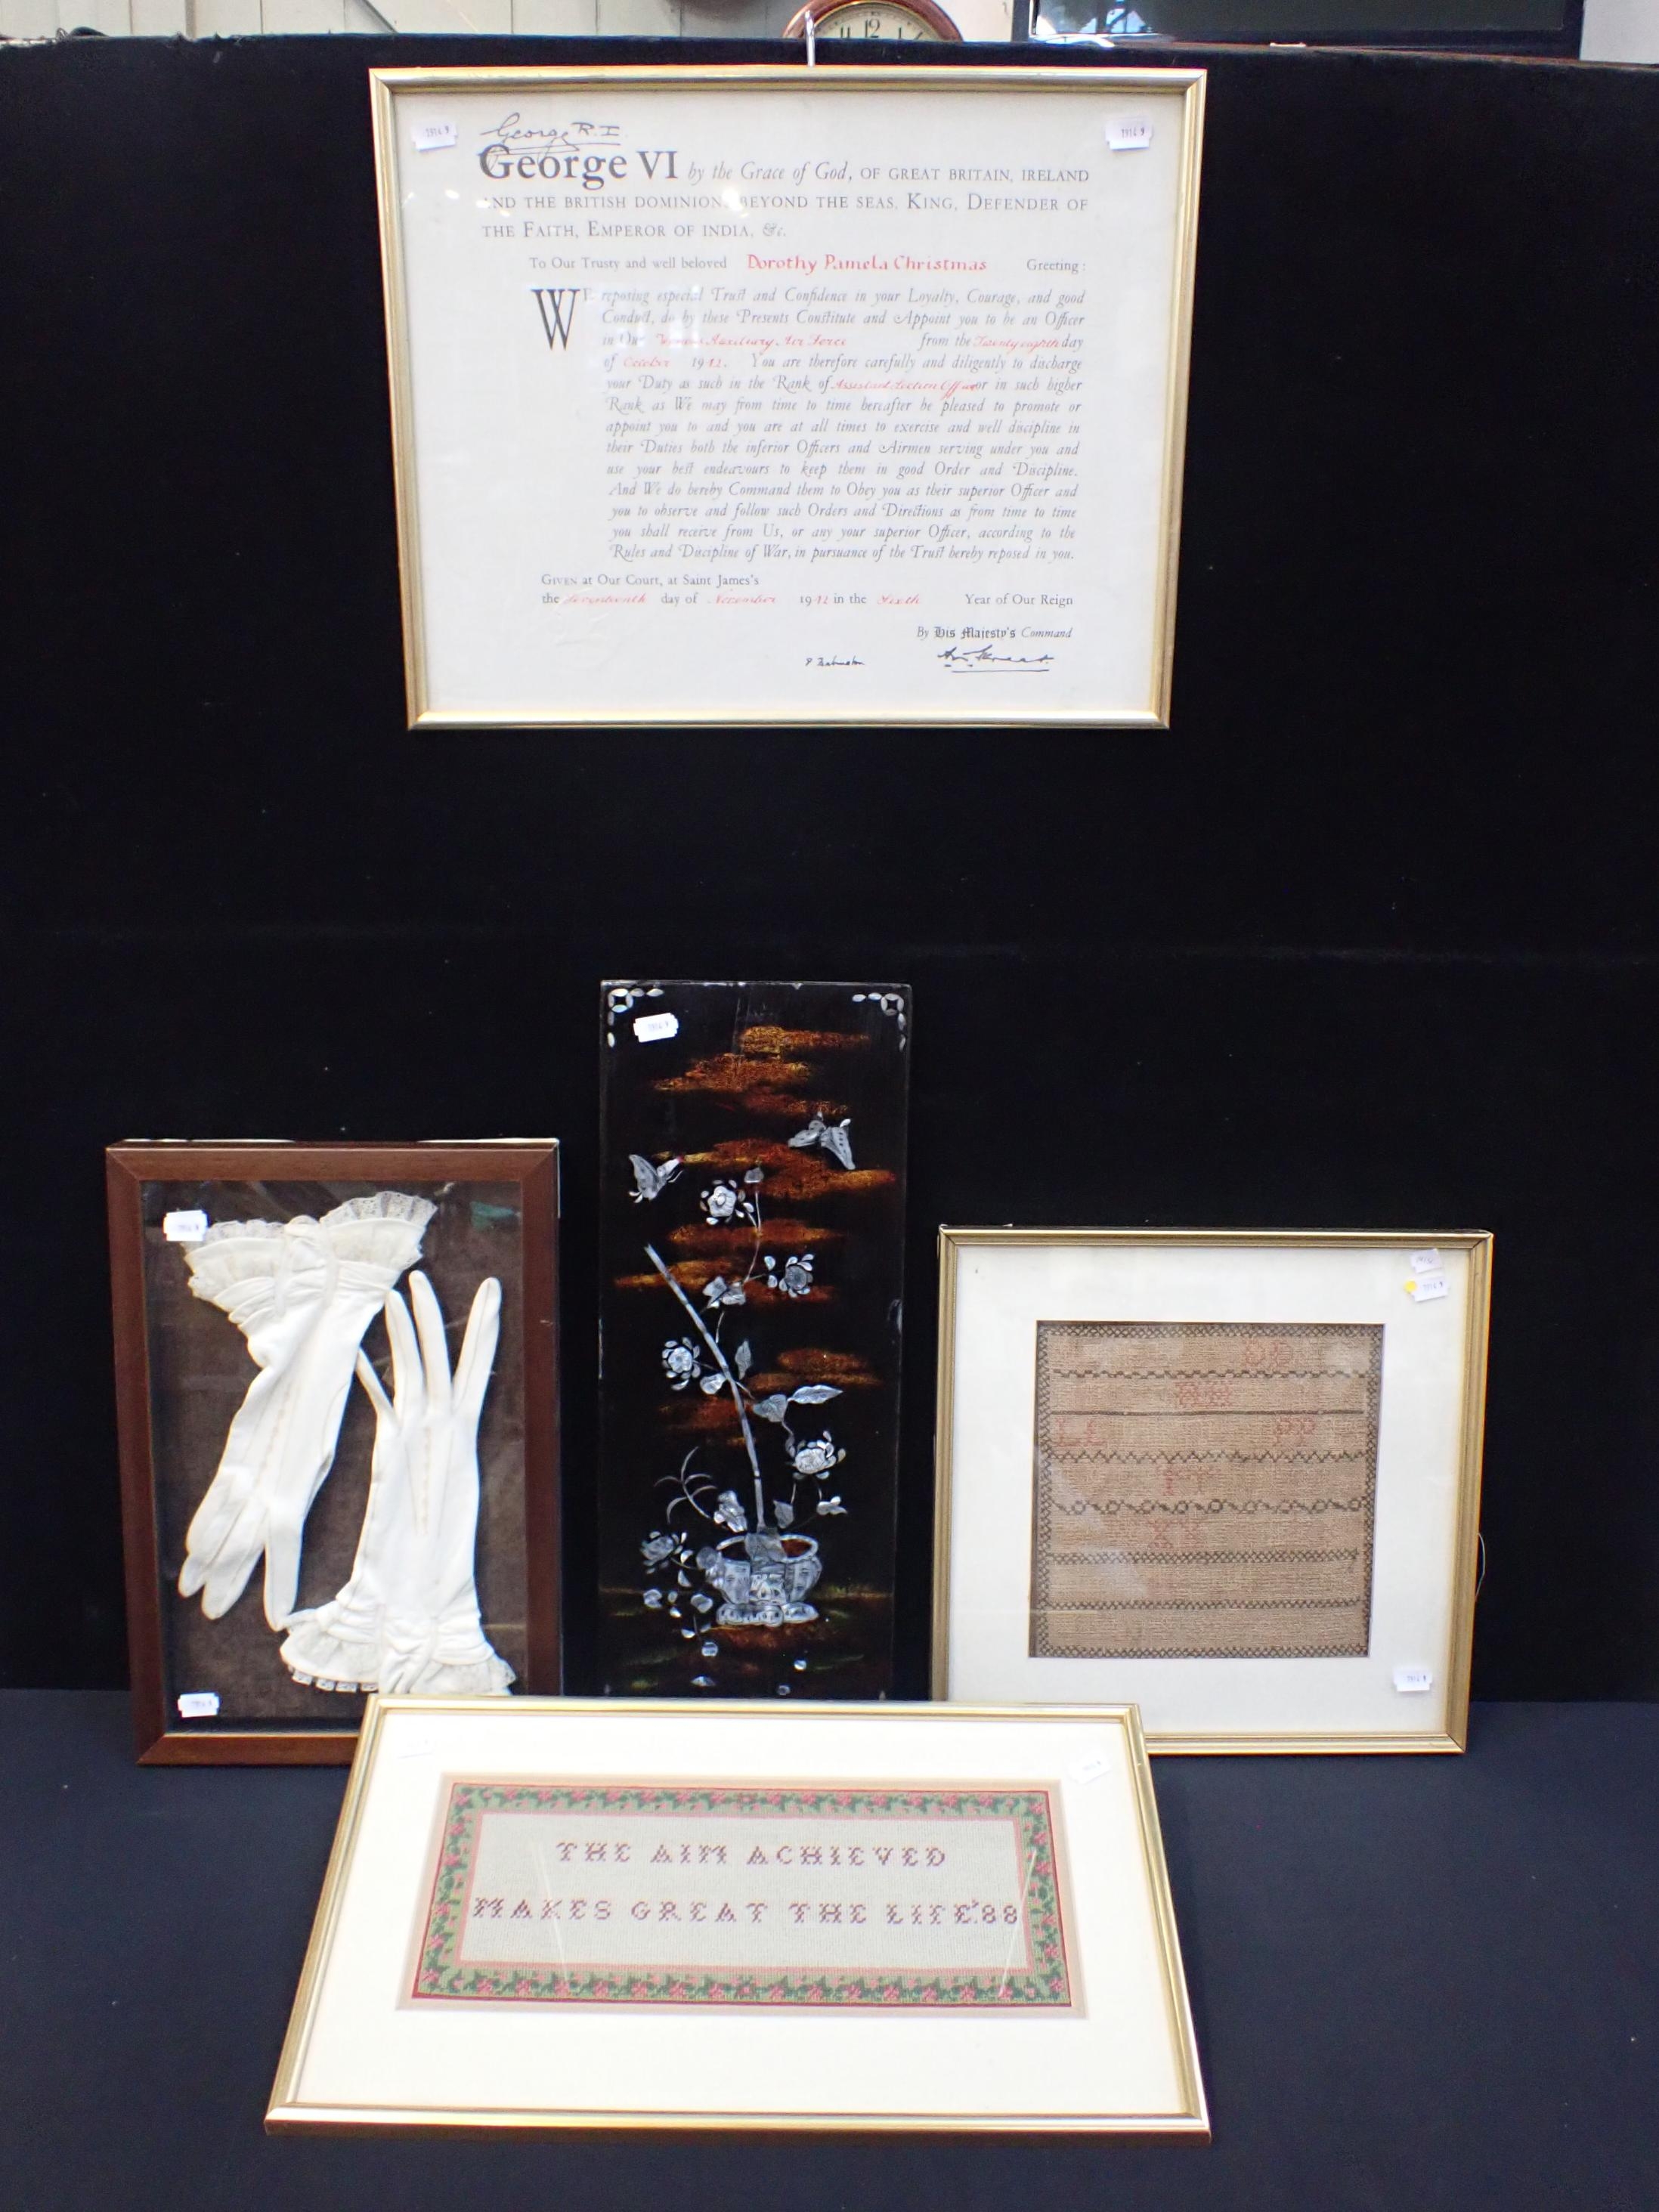 12
George R.I.
George VI by the Grace of God, OF GREAT BRITAIN, IRELAND
AND THE BRITISH DOMINIONS BEYOND THE SEAS, KING, DEFENDER OF
THE FAITH, EMPEROR OF INDIA, &c.
To Our Trusty and well beloved Dorothy Pamela Christmas Greeting:
WE reposing especial Trust and Confidence in your Loyalty, Courage, and good
Conduct, do by these Presents Constitute and Appoint you to be an Officer
in Our Women's Auxiliary Air Force from the Twenty eighth day
of October 1942. You are therefore carefully and diligently to discharge
your Duty as such in the Rank of Assistant Section Officer or in such higher
Rank as We may from time to time hereafter be pleased to promote or
appoint you to and you are at all times to exercise and well discipline in
their Duties both the inferior Officers and Airmen serving under you and
use your best endeavours to keep them in good Order and Discipline.
And We do hereby Command them to Obey you as their superior Officer and
you to observe and follow such Orders and Directions as from time to time
you shall receive from Us, or any your superior Officer, according to the
Rules and Discipline of War, in pursuance of the Trust hereby reposed in you.
GIVEN at Our Court, at Saint James's
the Seventeenth day of November 1942 in the Sixth Year of Our Reign
By His Majesty's Command
THE AIM ACHIEVED
MAKES GREAT THE LIFE.'88